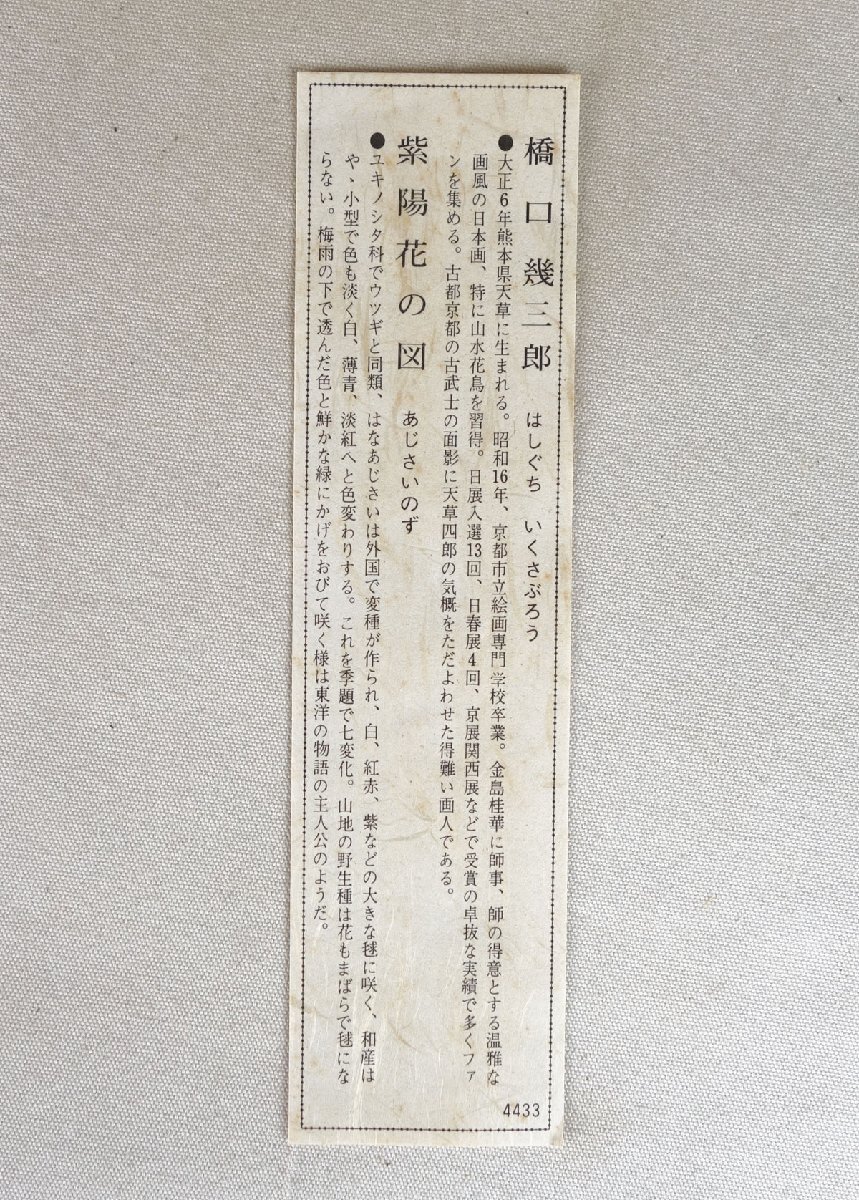 橋口幾三郎 はしぐち いくさぶろう
●大正6年熊本県天草に生まれる。昭和16年、京都市立絵画専門学校卒業。金島桂華に師事、師の得意とする温雅な
画風の日本画、特に山水花鳥を習得。日展入選13回、日春展4回、京展関西展などで受賞の卓抜な実績で多くファ
ンを集める。古都京都の古武士の面影に天草四郎の気概をただよわせた得難い画人である。
紫陽花の図 あじさいのず
●ユキノシタ科でウツギと同類、はなあじさいは外国で変種が作られ、白、紅赤、紫などの大きな毬に咲く、和産は
やゝ小型で色も淡く白、薄青、淡紅へと色変わりする。これを季題で七変化。山地の野生種は花もまばらで毬にな
らない。梅雨の下で透んだ色と鮮かな緑にかげをおびて咲く様は東洋の物語の主人公のようだ。
4433